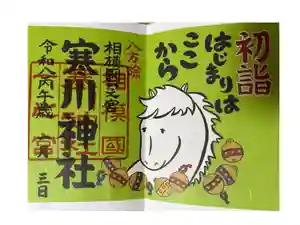 初詣
はじまりは
ここ
から
八方除
相模國一之宮
寒川神社
令和八丙午歳
三日